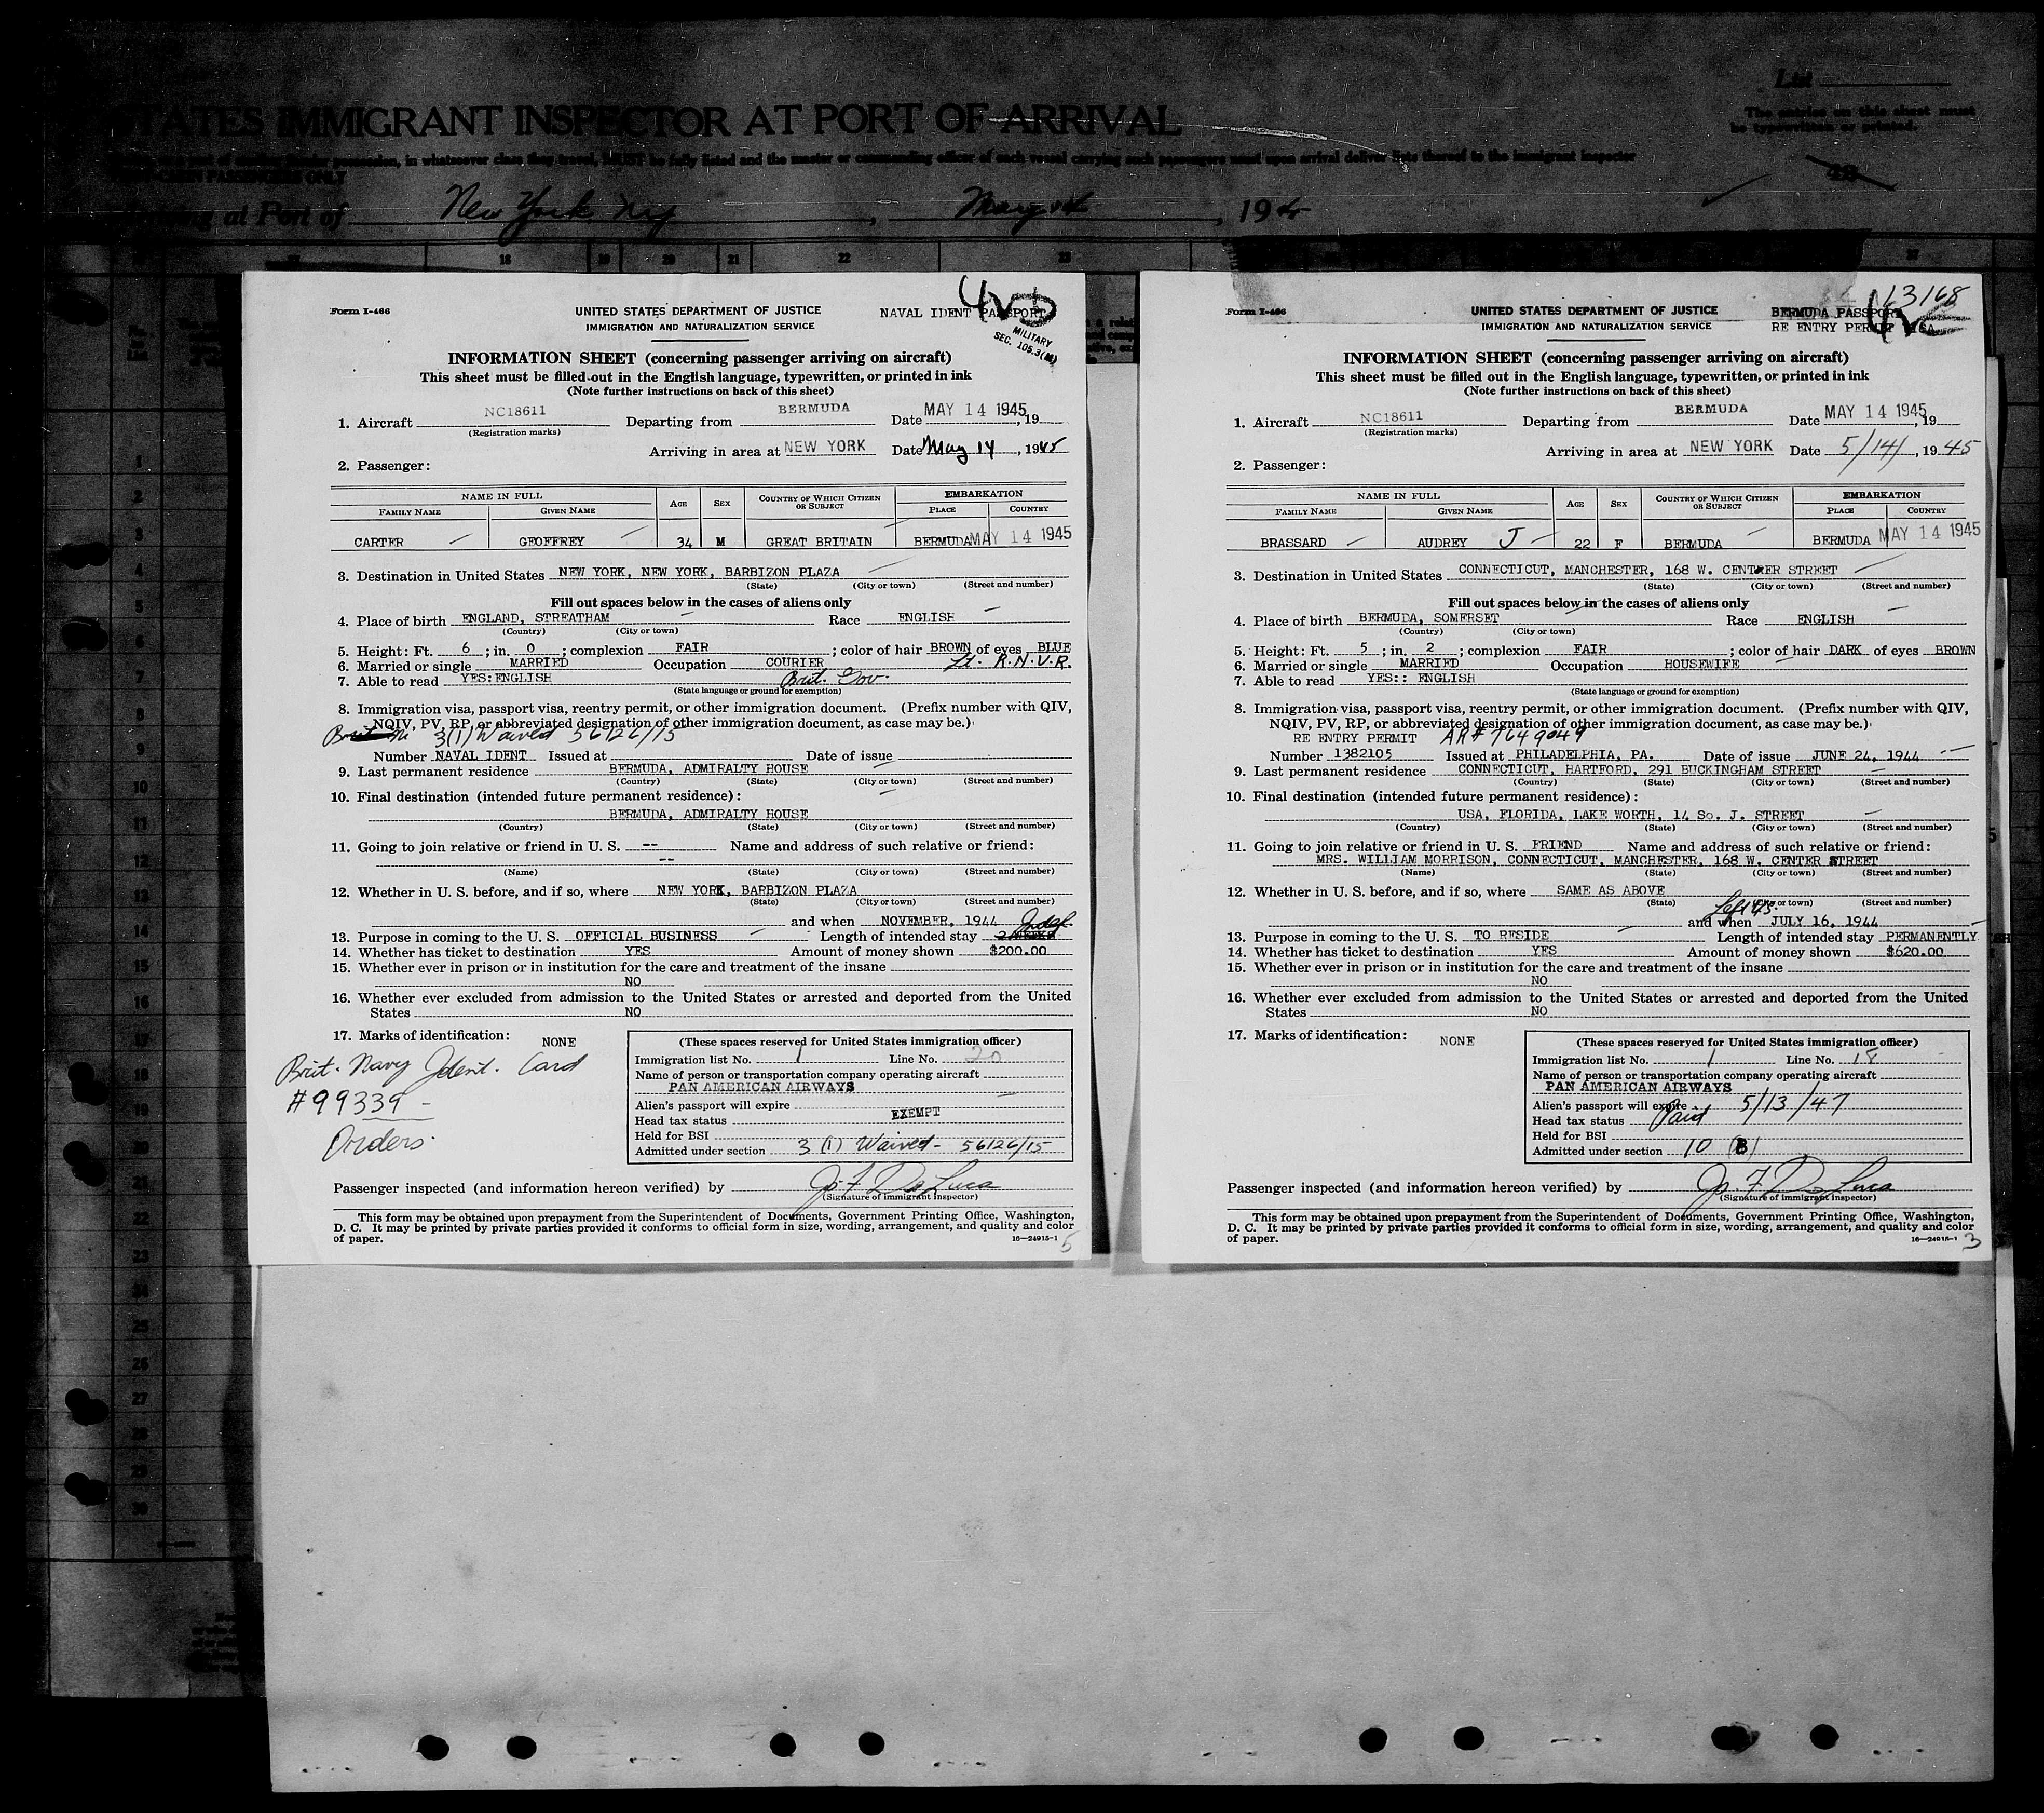 List
STATES IMMIGRANT INSPECTOR AT PORT OF ARRIVAL
The entries on this sheet must
be typewritten or printed.
in whatsoever class they travel, MUST be fully listed and the master or commanding officer of each vessel carrying such passengers must upon arrival deliver lists thereof to the immigrant inspector
at Port of New York, NY , May 14 , 19
18 19 20 21 22 23
Form I-466
UNITED STATES DEPARTMENT OF JUSTICE
IMMIGRATION AND NATURALIZATION SERVICE
NAVAL IDENT PASSPORT
MILITARY
SEC. 105.3
INFORMATION SHEET (concerning passenger arriving on aircraft)
This sheet must be filled out in the English language, typewritten, or printed in ink
(Note further instructions on back of this sheet)
1. Aircraft NC18611 Departing from BERMUDA Date MAY 14 1945, 19
(Registration marks)
Arriving in area at NEW YORK Date May 14, 1945
2. Passenger:
NAME IN FULL AGE SEX COUNTRY OF WHICH CITIZEN OR SUBJECT EMBARKATION
FAMILY NAME GIVEN NAME PLACE COUNTRY
CARTER GEOFFREY 34 M GREAT BRITAIN BERMUDA MAY 14 1945
3. Destination in United States NEW YORK, NEW YORK, BARBIZON PLAZA
(State) (City or town) (Street and number)
Fill out spaces below in the cases of aliens only
4. Place of birth ENGLAND, STREATHAM Race ENGLISH
(Country) (City or town)
5. Height: Ft. 6 ; in. 0 ; complexion FAIR ; color of hair BROWN of eyes BLUE
6. Married or single MARRIED Occupation COURIER Lt. R.N.V.R.
7. Able to read YES:ENGLISH Brit. Gov.
(State language or ground for exemption)
8. Immigration visa, passport visa, reentry permit, or other immigration document. (Prefix number with QIV,
NQIV, PV, RP, or abbreviated designation of other immigration document, as case may be.)
3(1) Waived 56126/15
Number NAVAL IDENT Issued at Date of issue
9. Last permanent residence BERMUDA, ADMIRALTY HOUSE
(Country) (State) (City or town) (Street and number)
10. Final destination (intended future permanent residence):
BERMUDA, ADMIRALTY HOUSE
(Country) (State) (City or town) (Street and number)
11. Going to join relative or friend in U. S. -- Name and address of such relative or friend:
--
(Name) (State) (City or town) (Street and number)
12. Whether in U. S. before, and if so, where NEW YORK, BARBIZON PLAZA
(State) (City or town) (Street and number)
and when NOVEMBER, 1944
13. Purpose in coming to the U. S. OFFICIAL BUSINESS Length of intended stay 2 WEEKS Indef.
14. Whether has ticket to destination YES Amount of money shown $200.00
15. Whether ever in prison or in institution for the care and treatment of the insane
NO
16. Whether ever excluded from admission to the United States or arrested and deported from the United
States NO
17. Marks of identification: NONE
Brit. Navy Ident. Card
#99339 -
Orders.
(These spaces reserved for United States immigration officer)
Immigration list No. 1 Line No. 20
Name of person or transportation company operating aircraft
PAN AMERICAN AIRWAYS
Alien's passport will expire
EXEMPT
Head tax status
Held for BSI
Admitted under section 3 (1) Waived - 56126/15
Passenger inspected (and information hereon verified) by Jo. F. De Luca
(Signature of immigrant inspector)
This form may be obtained upon prepayment from the Superintendent of Documents, Government Printing Office, Washington,
D. C. It may be printed by private parties provided it conforms to official form in size, wording, arrangement, and quality and color
of paper.
16—24915-1
5
Form I-466
UNITED STATES DEPARTMENT OF JUSTICE
IMMIGRATION AND NATURALIZATION SERVICE
13168
BERMUDA PASSPORT
RE ENTRY PERMIT VISA
INFORMATION SHEET (concerning passenger arriving on aircraft)
This sheet must be filled out in the English language, typewritten, or printed in ink
(Note further instructions on back of this sheet)
1. Aircraft NC18611 Departing from BERMUDA Date MAY 14 1945, 19
(Registration marks)
Arriving in area at NEW YORK Date 5/14/, 1945
2. Passenger:
NAME IN FULL AGE SEX COUNTRY OF WHICH CITIZEN OR SUBJECT EMBARKATION
FAMILY NAME GIVEN NAME PLACE COUNTRY
BRASSARD AUDREY J 22 F BERMUDA BERMUDA MAY 14 1945
3. Destination in United States CONNECTICUT, MANCHESTER, 168 W. CENTER STREET
(State) (City or town) (Street and number)
Fill out spaces below in the cases of aliens only
4. Place of birth BERMUDA, SOMERSET Race ENGLISH
(Country) (City or town)
5. Height: Ft. 5 ; in. 2 ; complexion FAIR ; color of hair DARK of eyes BROWN
6. Married or single MARRIED Occupation HOUSEWIFE
7. Able to read YES:: ENGLISH
(State language or ground for exemption)
8. Immigration visa, passport visa, reentry permit, or other immigration document. (Prefix number with QIV,
NQIV, PV, RP, or abbreviated designation of other immigration document, as case may be.)
RE ENTRY PERMIT AR# 7649049
Number 1382105 Issued at PHILADELPHIA, PA. Date of issue JUNE 24, 1944
9. Last permanent residence CONNECTICUT, HARTFORD, 291 BUCKINGHAM STREET
(Country) (State) (City or town) (Street and number)
10. Final destination (intended future permanent residence):
USA, FLORIDA, LAKE WORTH, 14 So. J. STREET
(Country) (State) (City or town) (Street and number)
11. Going to join relative or friend in U. S. FRIEND Name and address of such relative or friend:
MRS. WILLIAM MORRISON, CONNECTICUT, MANCHESTER, 168 W. CENTER STREET
(Name) (State) (City or town) (Street and number)
12. Whether in U. S. before, and if so, where SAME AS ABOVE
(State) (City or town) (Street and number)
Left US.
and when JULY 16, 1944
13. Purpose in coming to the U. S. TO RESIDE Length of intended stay PERMANENTLY
14. Whether has ticket to destination YES Amount of money shown $620.00
15. Whether ever in prison or in institution for the care and treatment of the insane
NO
16. Whether ever excluded from admission to the United States or arrested and deported from the United
States NO
17. Marks of identification: NONE
(These spaces reserved for United States immigration officer)
Immigration list No. 1 Line No. 18
Name of person or transportation company operating aircraft
PAN AMERICAN AIRWAYS
Alien's passport will expire 5/13/47
Head tax status Paid
Held for BSI
Admitted under section 10 (B)
Passenger inspected (and information hereon verified) by Jo. F. De Luca
(Signature of immigrant inspector)
This form may be obtained upon prepayment from the Superintendent of Documents, Government Printing Office, Washington,
D. C. It may be printed by private parties provided it conforms to official form in size, wording, arrangement, and quality and color
of paper.
16—24915-1
3